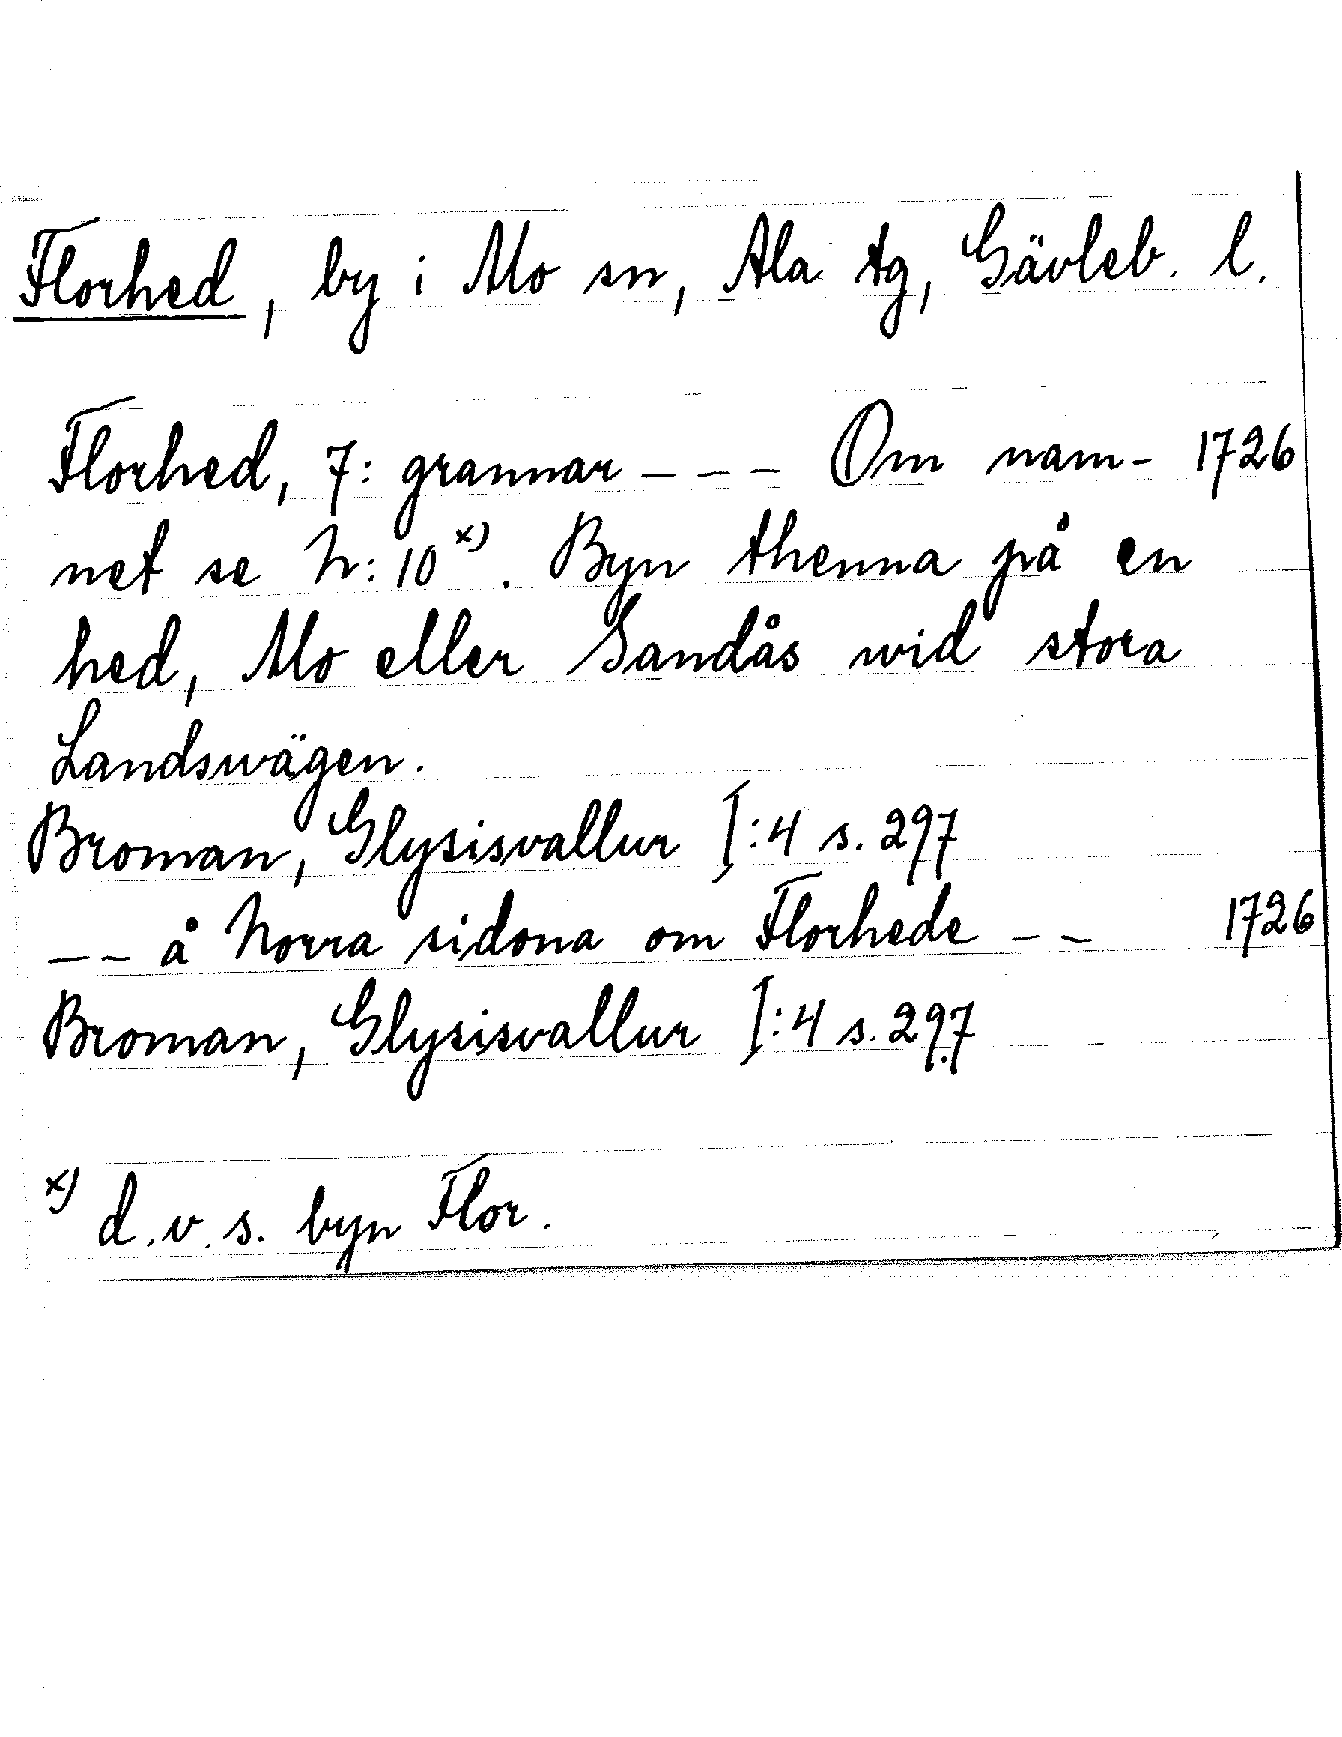 Florhed, by i Mo sn, Ala tg, Gävleb. l.
Florhed, 7: grannar - - - Om nam- 1726
net se N:10 x). Byn thenna på en
hed, Mo eller Sandås wid stora
Landswägen.
Broman, Glysisvallur I:4 s. 297
- - å Norra sidona om Florhede - - 1726
Broman, Glysisvallur I:4 s. 297
x) d.v.s. byn Flor.